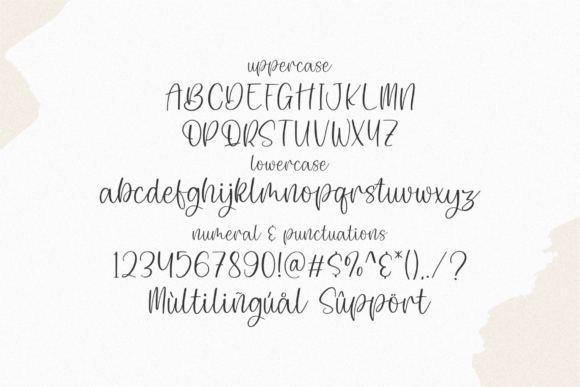 uppercase
ABCDEFGHIJKLMN
OPQRSTUVWXYZ
lowercase
abcdefghijklmnopqrstuvwxyz
numeral & punctuations
1234567890!@#$%^&*()../?
Mùltiliñgúål Sûppört